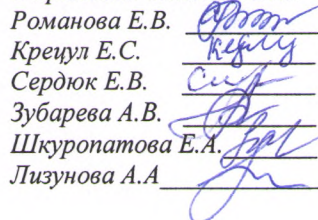 Романова Е.В.
Крецул Е.С.
Сердюк Е.В.
Зубарева А.В.
Шкуропатова Е.А.
Лизунова А.А